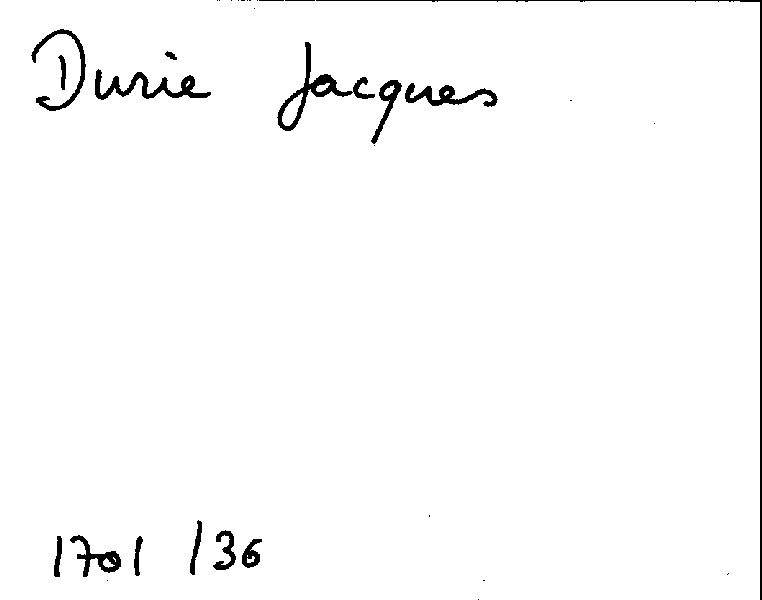 Durie Jacques
1701 /36